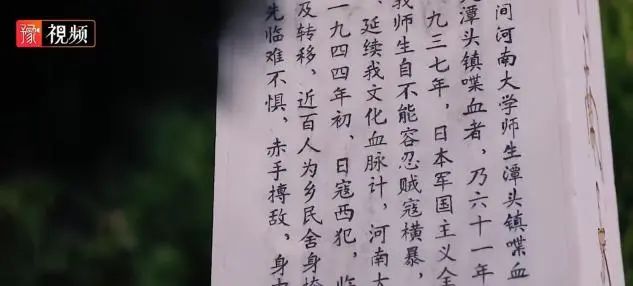 豫視频
间河南大学师生潭头镇喋血
潭头镇喋血者，乃六十一年
九三七年，日本军国主义全
我师生自不能容忍贼寇横暴，
延续我文化血脉计，河南大
一九四四年初，日寇西犯，临
及转移，近百人为乡民舍身
先临难不惧，赤手搏敌，身